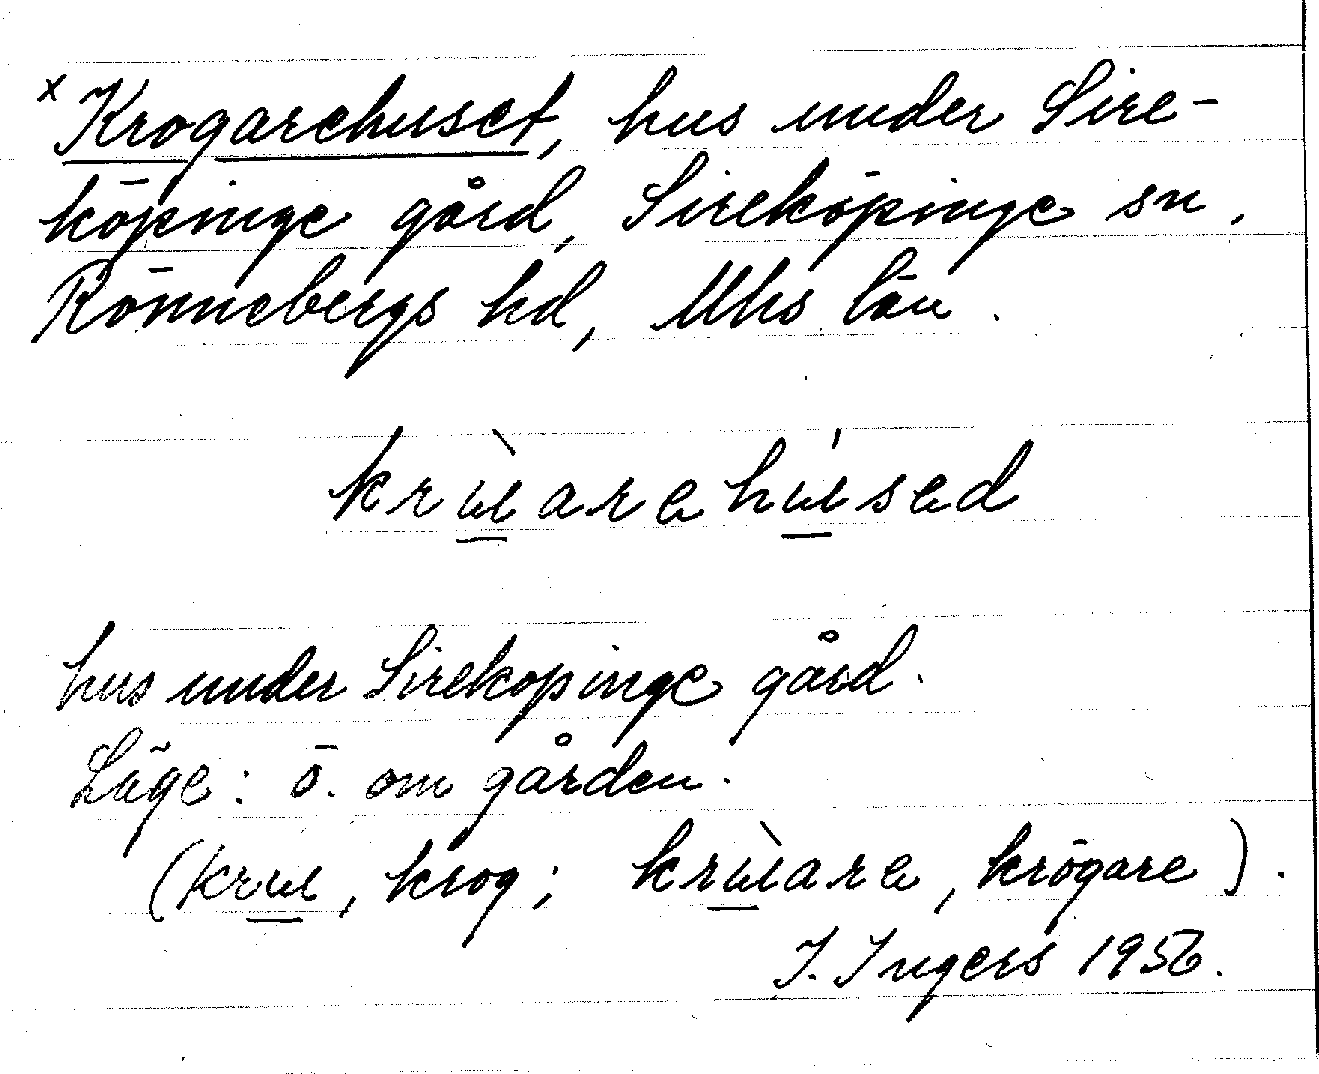 x Krogarehuset, hus under Sire-
köpinge gård, Sireköpinge sn,
Rönnebergs hd, Mhs län.
krùarehúsed
hus under Sireköpinge gård.
Läge: ö. om gården.
(kru, krog; krùare, krögare).
I. Ingers 1956.